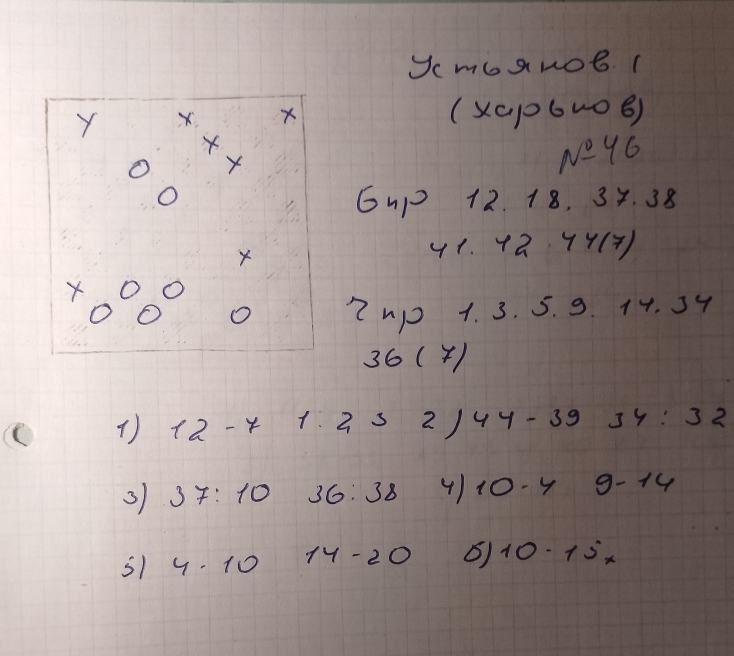 Устьянов. (
(Харьков)
№ 46
б пр 12. 18. 37. 38
41. 42. 44 (7)
ч пр 1. 3. 5. 9. 14. 34
36 (7)
1) 12 - 7 1 : 23 2) 44 - 39 34 : 32
3) 37 : 10 36 : 38 4) 10 - 4 9 - 14
5) 4 - 10 14 - 20 6) 10 - 15 x